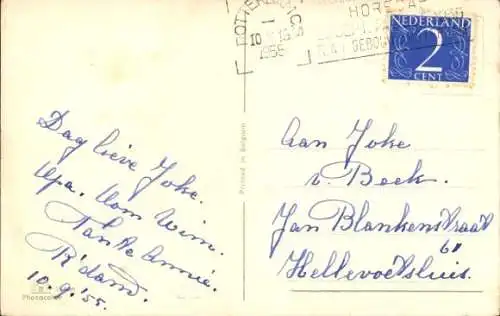 ROTTERDAM
HORECAF
10
1955
R.A.I GEBOUW
NEDERLAND
2
CENT
Dag lieve Joke.
Opa. Oom Wim.
Tante Annie.
R'dam.
10.9.'55.
Photocolor
Printed in Belgium
Aan Joke
v. Beek.
Jan Blankenstraat
61
Hellevoetsluis.